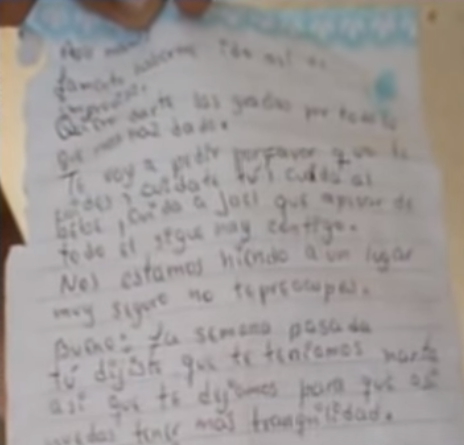 mami
Lamento haberme ido así de
improviso.
Quiero darte las gracias por todo lo
que nos haz dado.
Te voy a pedir porfavor que te
cuides, cuidate tú, cuida al
bebe, cuida a Joel que apisar de
todo el sigue hay contigo.
Nos estamos hiendo a un lugar
muy siguro no te preocupes.
Bueno: La semana pasada
tú dijiste que te teníamos harta
así que te dejamos para que así
puedas tener más tranquilidad.